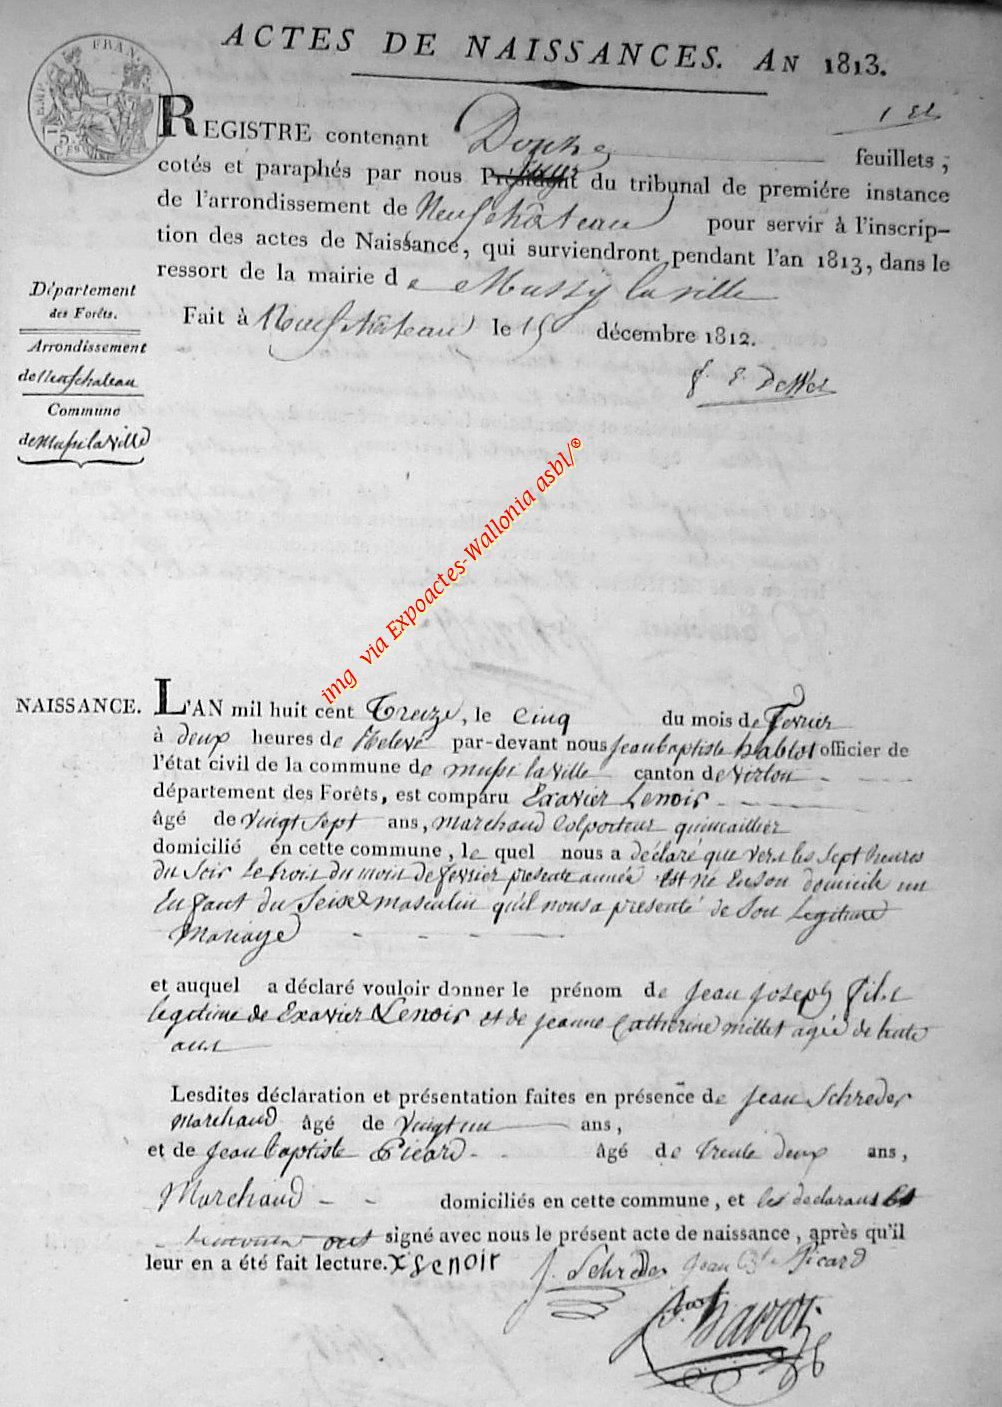 ACTES DE NAISSANCES. AN 1813.
FRAN
EMP.
75
C.ES
REGISTRE contenant Douze feuillets,
cotés et paraphés par nous Président juge du tribunal de premiére instance
de l'arrondissement de Neufchâteau pour servir à l'inscrip-
tion des actes de Naissance, qui surviendront pendant l'an 1813, dans le
ressort de la mairie de Mussy la ville
Fait à Neufchâteau le 15 décembre 1812.
Département
des Forêts.
Arrondissement
de Neufchateau
Commune
de Mussi la ville
img via Expoactes-Wallonia asbl/®
NAISSANCE. L'AN mil huit cent Treize, le Cinq du mois de fevrier
à deux heures de Relevé par-devant nous jean baptiste hablot officier de
l'état civil de la commune de mussi la ville canton de virton
département des Forêts, est comparu Exavier Lenoir
âgé de vingt sept ans, marchand Colporteur quincaillier
domicilié en cette commune, le quel nous a déclaré que vers les sept heures
du Soir le trois du mois de fevrier presente année est né en son domicile un
Enfant du Sexe masculin qu'il nous a presenté de son Legitime
Mariage
et auquel a déclaré vouloir donner le prénom de jean joseph fils
legitime de Exavier Lenoir et de jeanne Catherine millet agée de trente
ans
Lesdites déclaration et présentation faites en présence de jean Schreder
marchand âgé de vingt un ans,
et de jean baptiste Picard âgé de trente deux ans,
Marchand domiciliés en cette commune, et les declarans les
temoins ont signé avec nous le présent acte de naissance, après qu'il
leur en a été fait lecture. X Lenoir J. Schreder jean Bte Picard